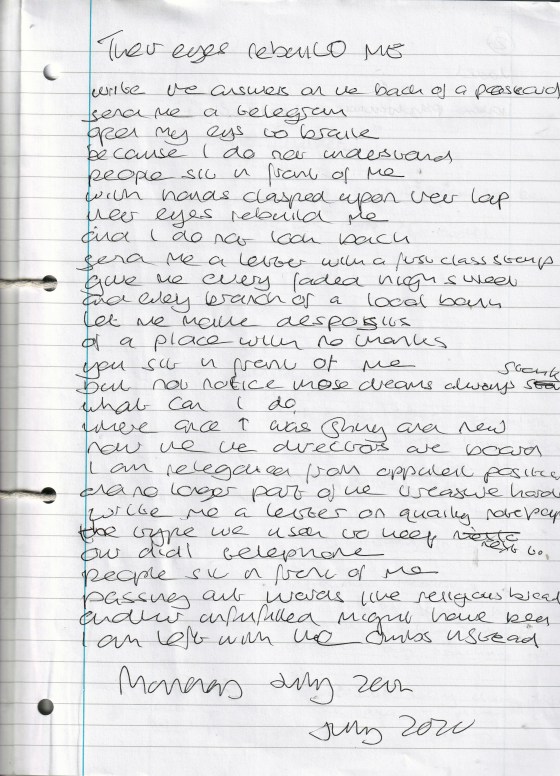 Their eyes rebuild me
write the answers on the back of a postcard
send me a telegram
open my eyes to braille
because I do not understand
people sit in front of me
with hands clasped upon their lap
their eyes rebuild me
and I do not look back
send me a letter with a first class stamp
give me every faded high street
and every branch of a local bank
let me make desposits
of a place with no thanks
you sit in front of me
but not notice these dreams always
what can I do
where once I was shiny and new
now the the directors are board
I am relegated from apparent position
and no longer part of the treasure hoard
write me a letter on quality notepaper
the type we used to keep next to
our dial telephone
people sit in front of me
passing out words like religious bread
and unfulfilled might have been
I am left with the crumbs instead
Monday July
July 2020